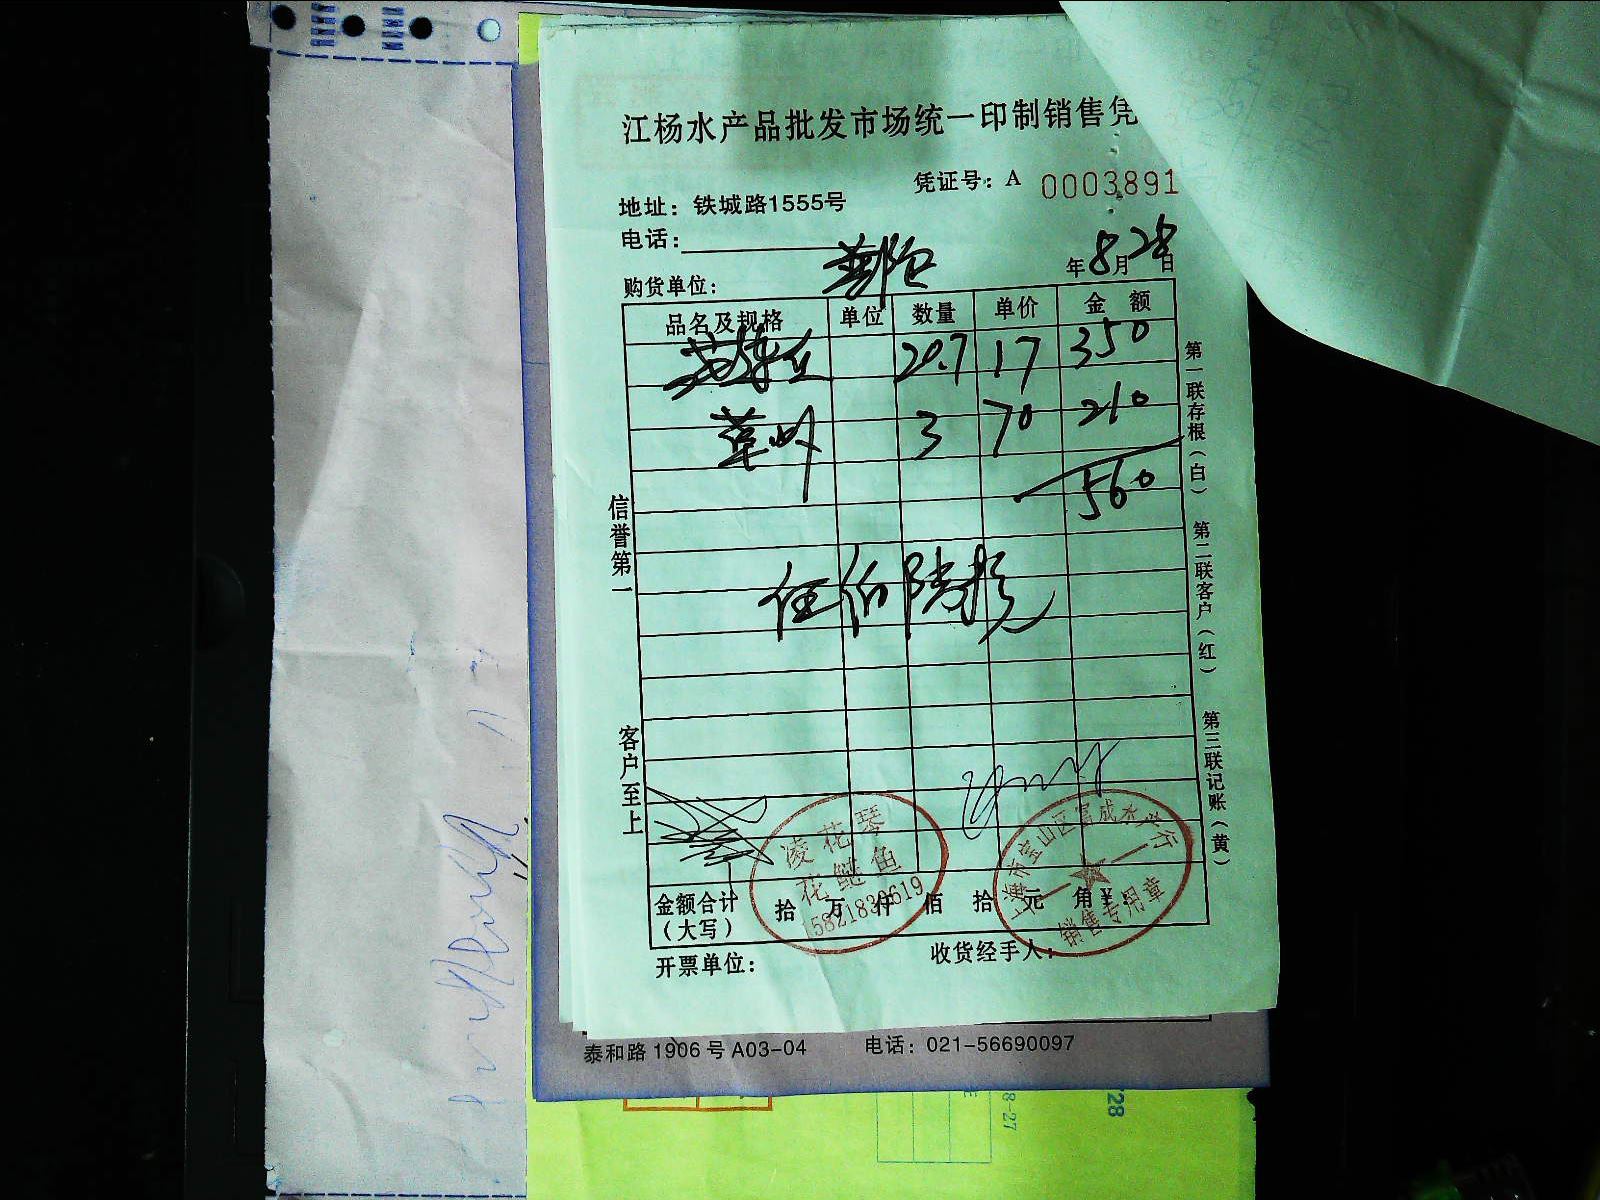 江杨水产品批发市场统一印制销售凭
凭证号：A 0003891
地址：铁城路1555号
电话：
年8月28日
购货单位：
品名及规格 单位 数量 单价 金额
20.7 17 350
草 3 70 210
560
伍佰陆拾元
信誉第一
客户至上
第一联存根（白）
第二联客户（红）
第三联记账（黄）
凌花琴
花鲢鱼
15821830619
上海市宝山区富成水产行
销售专用章
金额合计 拾 万 仟 佰 拾 元 角 ¥：
（大写）
开票单位： 收货经手人：
泰和路1906号A03-04 电话：021-56690097
8-27
728